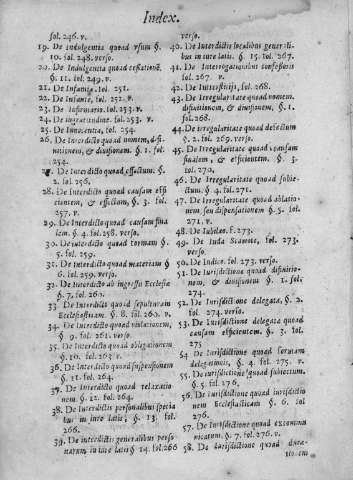 Index.
fol. 246. v.
19. De indulgentia quoad usum §.
10. fol. 248. verso.
20. De Indulgentia quoad cessationē.
§. 11. fol. 249. v.
21. De Infamia. fol. 251.
22. De Infante, fol. 252. v.
23. De Infirmario. fol. 253. v.
24. De ingratitudine. fol. 253. v.
25. De Innocentia, fol. 254.
26. De Interdicto quoad nomen, difi
nitionem, & divisionem. §. 1. fol.
254.
27. De Interdicto quoad effectum. §.
2. fol. 256.
28. De Interdicto quoad causam effi
cientem, & effectam, §. 3. fol.
257. v.
29. De Interdicto quoad causam fina
lem. §. 4. fol. 258. verso.
30. De interdicto quoad formam §.
5. fol. 259.
31. De Interdicto quoad materiam §
6. fol. 259. verso.
32. De Interdicto ab ingressu Ecclesiæ
§. 7. fol. 260.
33. De Interdicto quoad sepulturam
Ecclesiasticam. §. 8. fol. 260. v.
34. De Interdicto quoad violationem,
§. 9. fol. 261. verso.
35. De Interdicto quoad obligationem
§. 10. fol. 263 v.
36. De Interdicto quoad suspensionem
§. 11. fol. 264.
37. De Interdicto quoad relaxatio
nem §. 12. fol. 264.
38. De Interdictis personalibus specia
bus in toto lure, §. 13. fol.
266.
39. De interdictis generalibus perso
narum in iure §. 14. fol. 266
verso.
40. De Interdictis localibus generali-
bus in iure latis. §. 15. fol. 267.
41. De Interrogationibus confessoris
fol. 267. v.
42. De Interstitijs, fol. 268.
43. De Irregularitate quoad nomem,
difinitionem, & divisionem, §. 1.
fol. 268.
44. De irregularitate quoad defectum
§. 2. fol. 269. verso.
45. De Irregularitate quoad causam
finalem, & efficientem. §. 3.
fol. 270.
46. De Irregularitate quoad subie-
ctum. §. 4. fol. 271.
47. De Irregularitate quoad ablatio-
nem, seu dispensationem §. 5. fol.
271. v.
48. De Iubileo. f. 273.
49. De Iuda Scariote, fol. 273.
verso.
50. De Iudice. fol. 273. verso.
51. De Iurisdictione quoad difinitio-
nem, & divisionem §. 1. fol.
274.
52. De Iurisdictione delegata, §. 2.
fol. 274. verso.
53. De Iurisdictione delegata quoad
causam efficientem. §. 3. fol.
275
54 De Iurisdictione quoad formam
delegationis, §. 4. fol. 275. v.
55. De iurisdictione quoad subiectum.
§. 5. fol 276.
56. De Iurisdictione quoad iurisdictio
nem Ecclesiasticam §. 6. fol
276.
57. De Iurisdictione quoad excommu
nicatum. §. 7. fol. 276. v.
58. De Iurisdictione quoad dura-
tionem